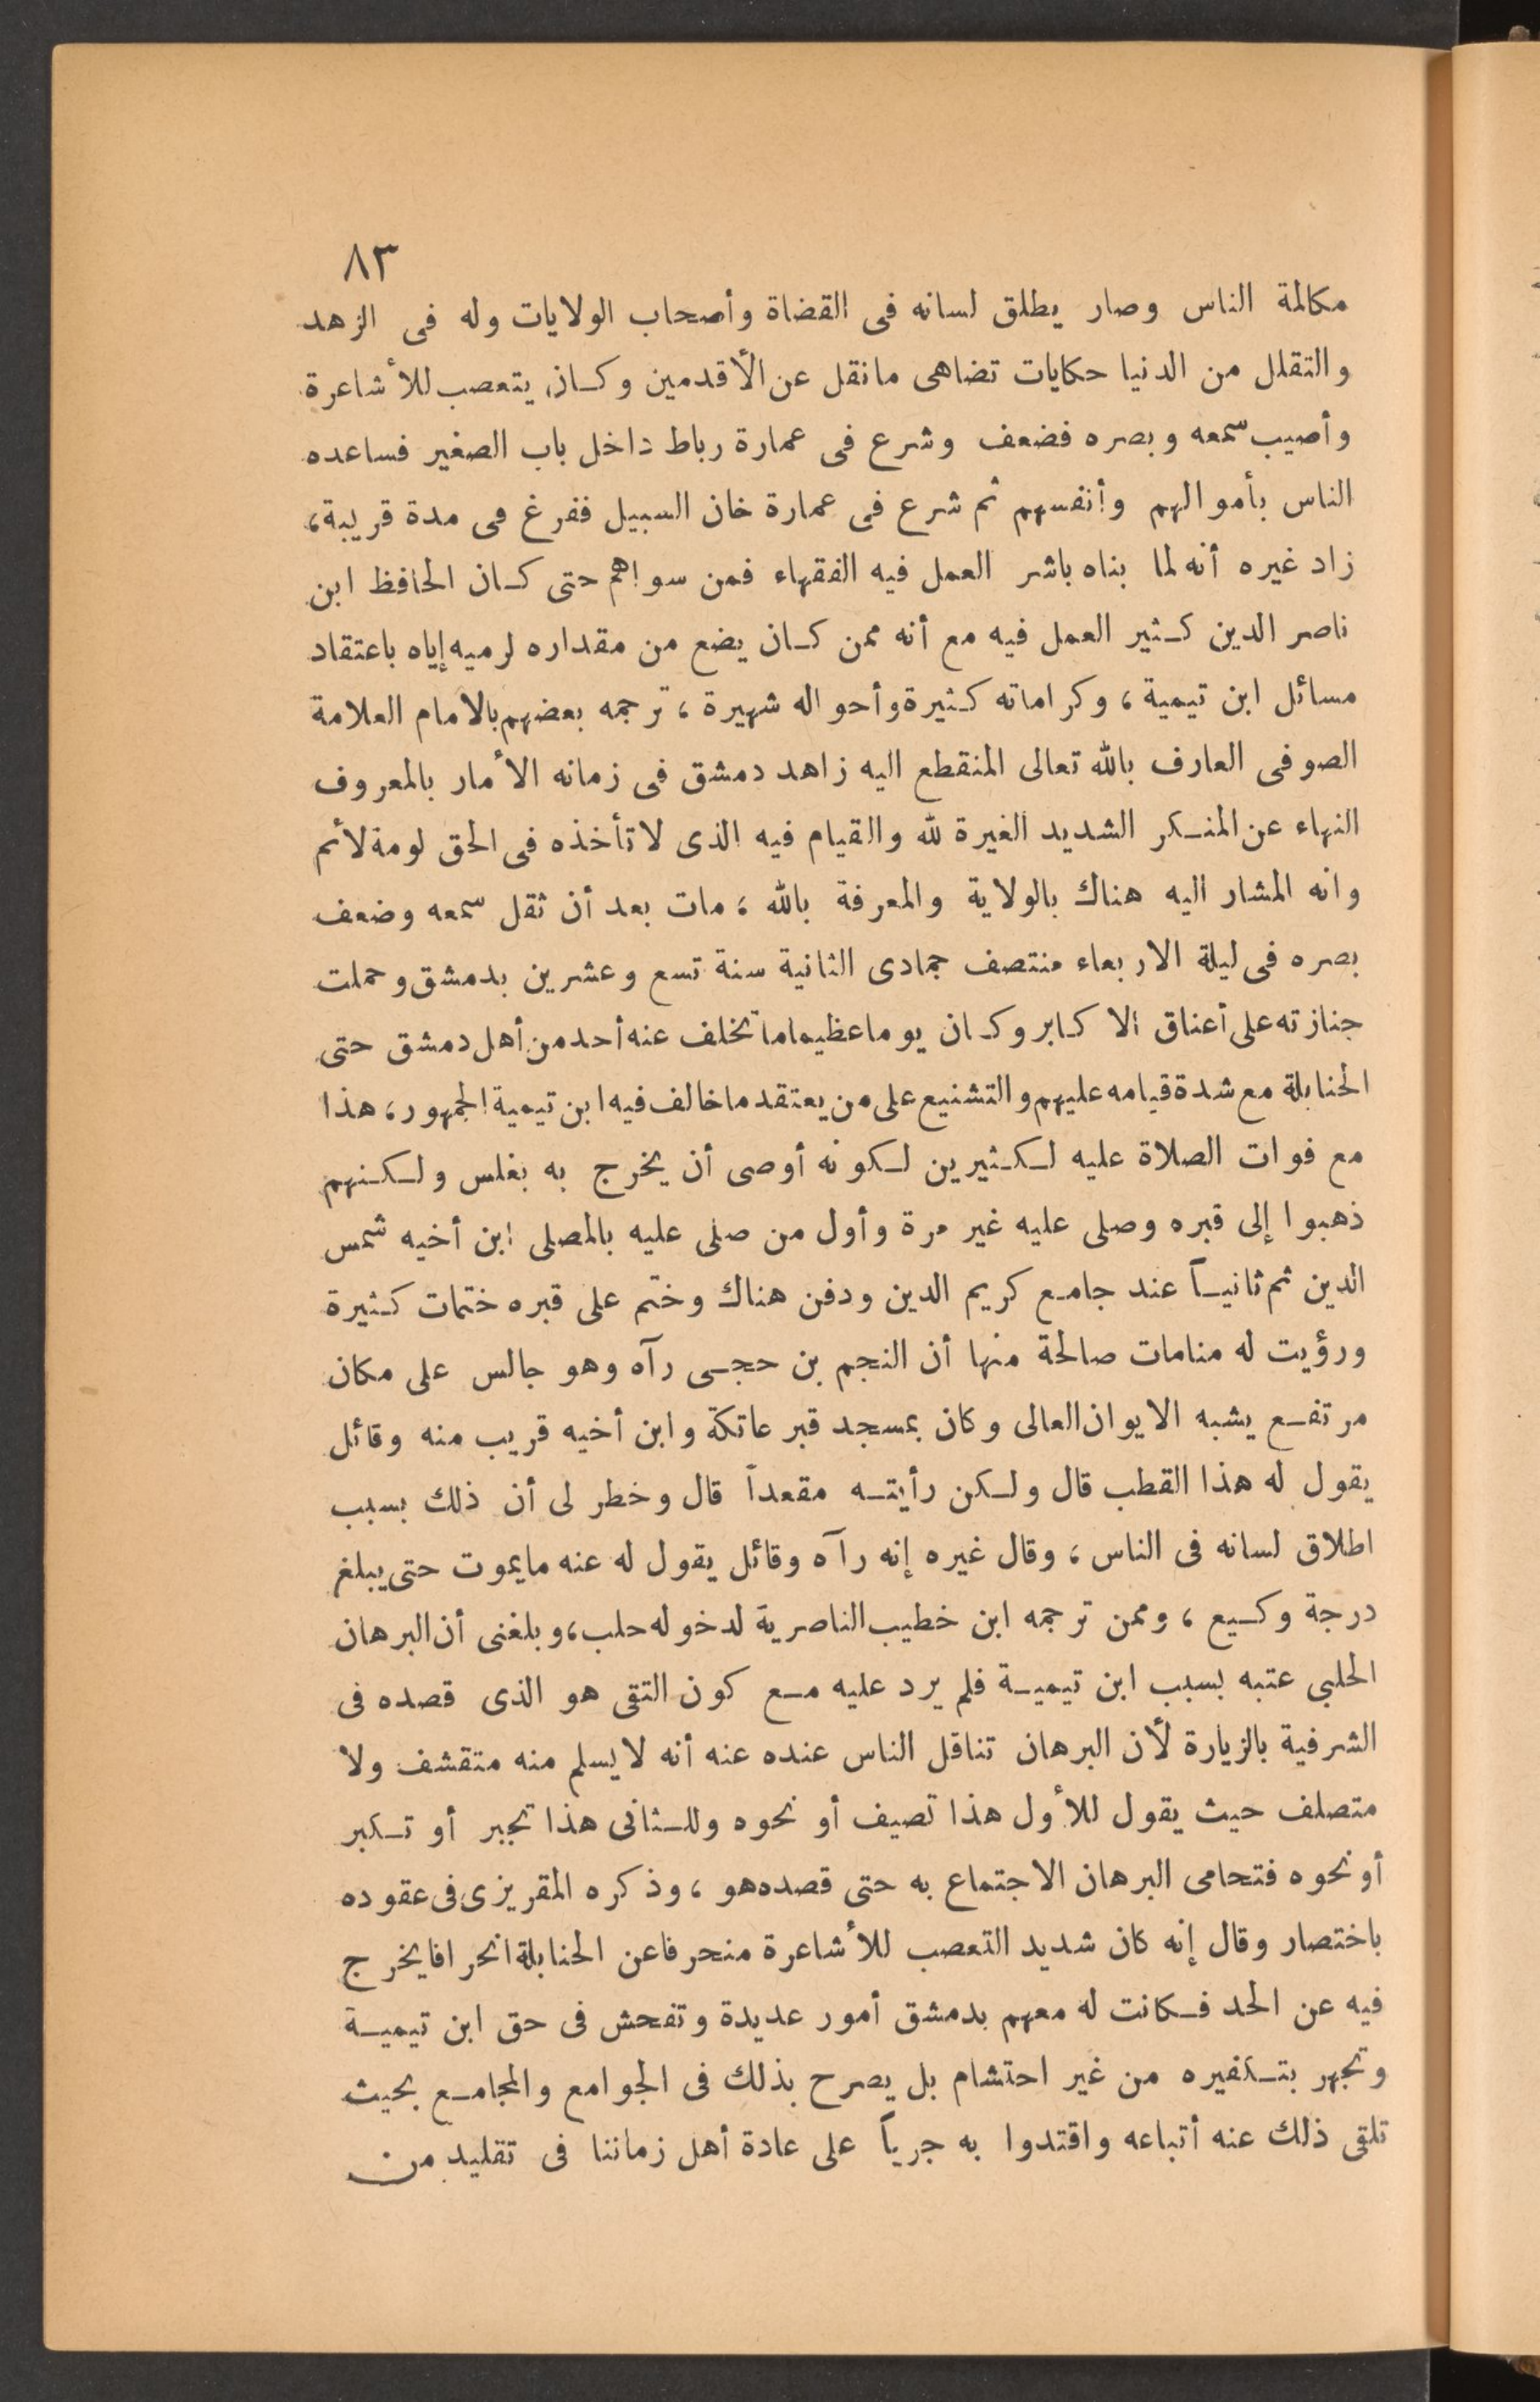 ٨٣
مكالمة الناس وصار يطلق لسانه فى القضاة وأصحاب الولايات وله فى الزهد
والتقلل من الدنيا حكايات تضاهى مانقل عن الأقدمين وكان يتعصب للأشاعرة
وأصيب سمعه وبصره فضعف وشرع فى عمارة رباط داخل باب الصغير فساعده
الناس بأموالهم وأنفسهم ثم شرع فى عمارة خان السبيل ففرغ فى مدة قريبة،
زاد غيره أنه لما بناه باشر العمل فيه الفقهاء فمن سواهم حتى كان الحافظ ابن
ناصر الدين كثير العمل فيه مع أنه ممن كان يضع من مقداره لرميه إياه باعتقاد
مسائل ابن تيمية، وكراماته كثيرة وأحواله شهيرة، ترجمه بعضهم بالامام العلامة
الصوفى العارف بالله تعالى المنقطع اليه زاهد دمشق فى زمانه الأمار بالمعروف
النهاء عن المنكر الشديد الغيرة لله والقيام فيه الذى لا تأخذه فى الحق لومة لائم
وانه المشار اليه هناك بالولاية والمعرفة بالله، مات بعد أن ثقل سمعه وضعف
بصره فى ليلة الاربعاء منتصف جمادى الثانية سنة تسع وعشرين بدمشق وحملت
جنازته على أعناق الاكابر وكان يوما عظيما ما تخلف عنه أحد من أهل دمشق حتى
الحنابلة مع شدة قيامه عليهم والتشنيع على من يعتقد ما خالف فيه ابن تيمية الجمهور، هذا
مع فوات الصلاة عليه لكثيرين لكونه أوصى أن يخرج به بغلس ولكنهم
ذهبوا إلى قبره وصلى عليه غير مرة وأول من صلى عليه بالمصلى ابن أخيه شمس
الدين ثم ثانياً عند جامع كريم الدين ودفن هناك وختم على قبره ختمات كثيرة
ورؤيت له منامات صالحة منها أن النجم بن حجى رآه وهو جالس على مكان
مرتفع يشبه الايوان العالى وكان بمسجد قبر عاتكة وابن أخيه قريب منه وقائل
يقول له هذا القطب قال ولكن رأيته مقعداً قال وخطر لى أن ذلك بسبب
اطلاق لسانه فى الناس، وقال غيره إنه رآه وقائل يقول له عنه مايموت حتى يبلغ
درجة وكيع، وممن ترجمه ابن خطيب الناصرية لدخوله حلب، وبلغنى أن البرهان
الحلبى عتبه بسبب ابن تيمية فلم يرد عليه مع كون التقى هو الذى قصده فى
الشرفية بالزيارة لأن البرهان تناقل الناس عنده عنه أنه لايسلم منه متقشف ولا
متصلف حيث يقول للأول هذا تصيف أو نحوه وللثانى هذا تجبر أو تكبر
أو نحوه فتحامى البرهان الاجتماع به حتى قصده هو، وذكره المقريزى فى عقوده
باختصار وقال إنه كان شديد التعصب للأشاعرة منحرفا عن الحنابلة انحرافا يخرج
فيه عن الحد فكانت له معهم بدمشق أمور عديدة وتفحش فى حق ابن تيمية
وتجهر بتكفيره من غير احتشام بل يصرح بذلك فى الجوامع والمجامع بحيث
تلقى ذلك عنه أتباعه واقتدوا به جرياً على عادة أهل زماننا فى تقليد من